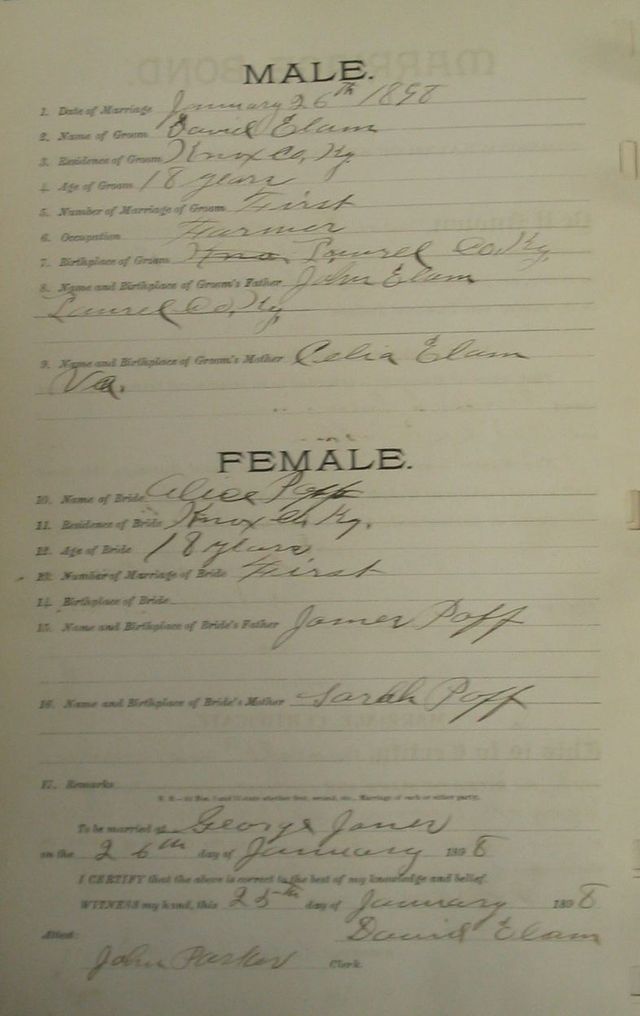 MALE.
1. Date of Marriage January 26th 1898
2. Name of Groom David Elam
3. Residence of Groom Knox Co, Ky
4. Age of Groom 18 years
5. Number of Marriage of Groom First
6. Occupation Farmer
7. Birthplace of Groom Knox Laurel Co, Ky
8. Name and Birthplace of Groom's Father John Elam
Laurel Co, Ky,
9. Name and Birthplace of Groom's Mother Celia Elam
Va.
FEMALE.
10. Name of Bride Alice Poff
11. Residence of Bride Knox Co, Ky.
12. Age of Bride 18 years
13. Number of Marriage of Bride First
14. Birthplace of Bride
15. Name and Birthplace of Bride's Father James Poff
16. Name and Birthplace of Bride's Mother Sarah Poff
17. Remarks
To be married at George Jones
on the 26th day of January 1898
I CERTIFY that the above is correct to the best of my knowledge and belief.
WITNESS my hand, this 25th day of January 1898
David Elam
Attest:
John Parker Clerk